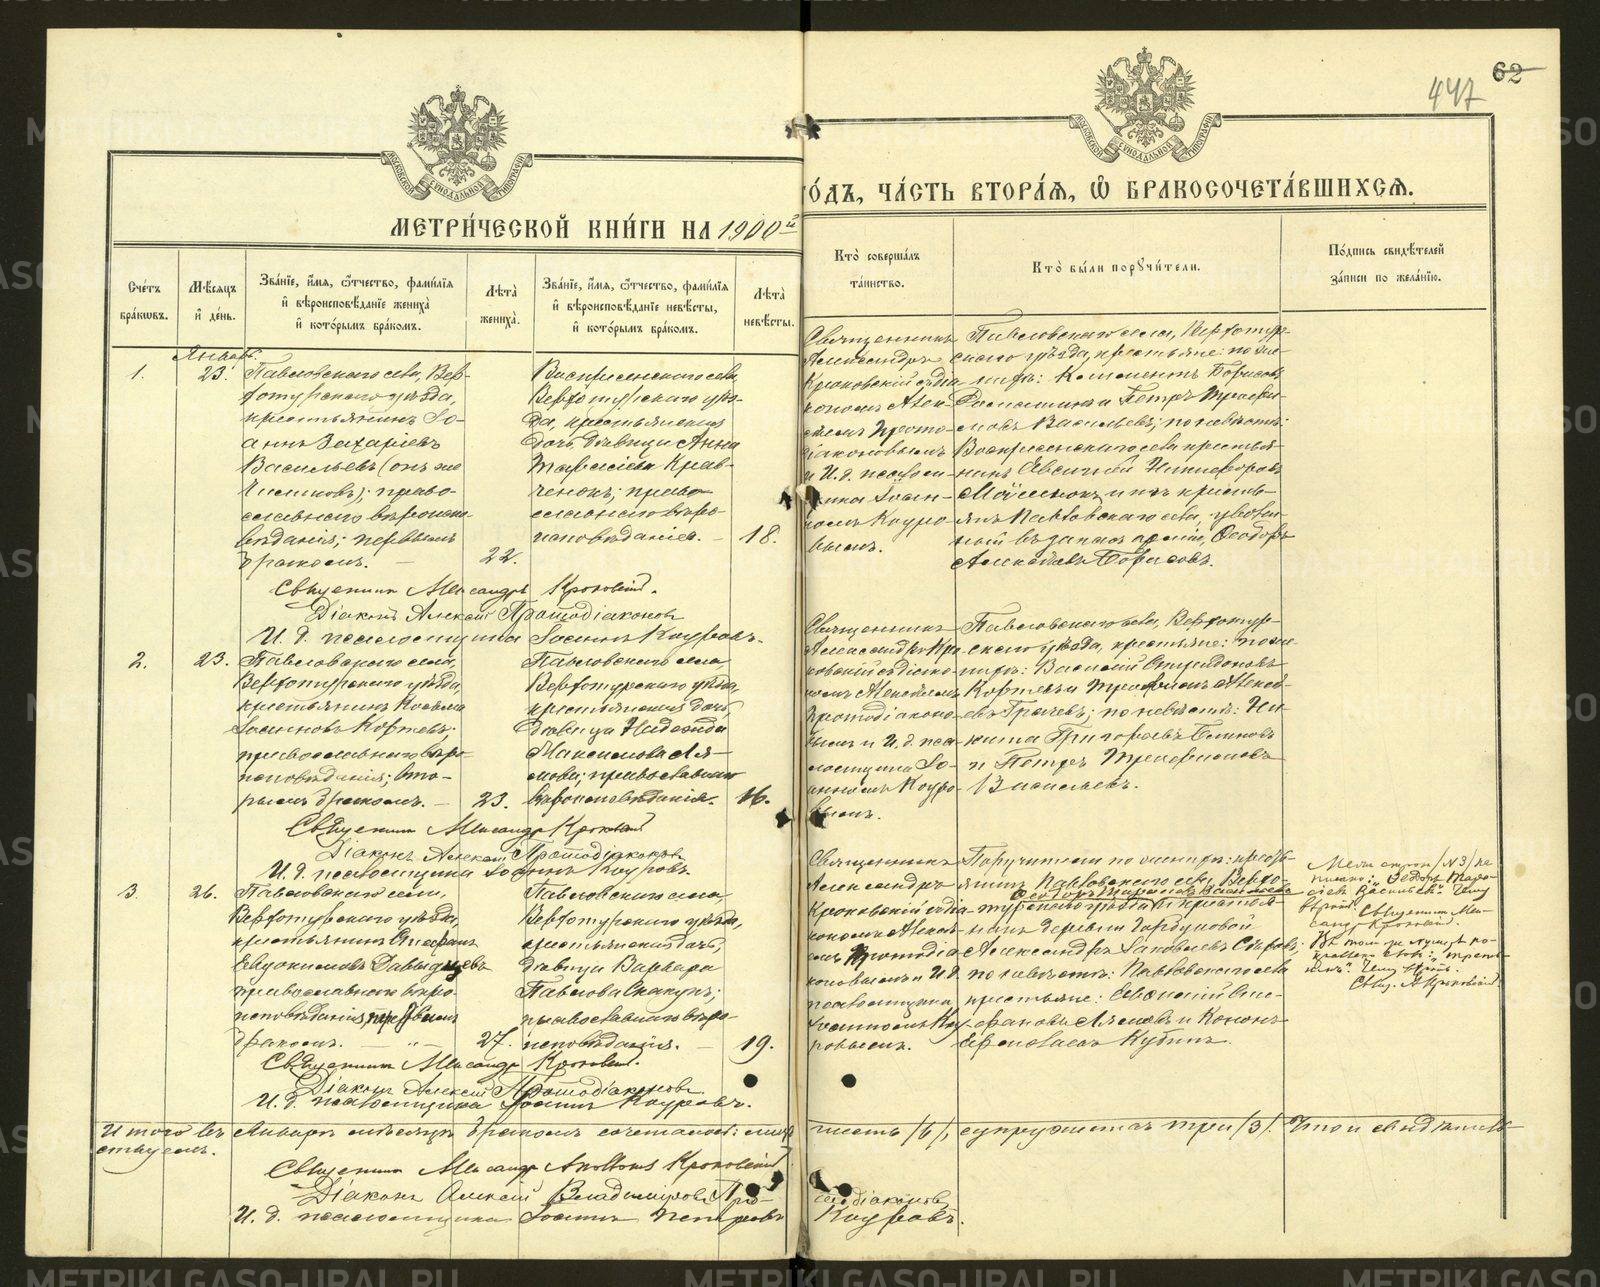 447
62
МЕТРИ́ЧЕСКОЙ КНИ́ГИ НА 1900й
ГО́ДЪ, ЧА́СТЬ ВТОРА́Я, Ѡ БРАКОСОЧЕТА́ВШИХСЯ.
Сче́тъ бра́кѡвъ.
Мѣ́сяцъ и҆ де́нь.
Зва́нїе, и҆́мя, ѻ҆́тчество, фами́лїя
и҆ вѣроисповѣ́данїе жениха̀
и҆ кото́рымъ бра́комъ.
Лѣ́та̀ жениха̀.
Зва́нїе, и҆́мя, ѻ҆́тчество, фами́лїя
и҆ вѣроисповѣ́данїе невѣ́сты,
и҆ кото́рымъ бра́комъ.
Лѣ́та̀ невѣ́сты.
Кто̀ соверша́лъ
та́инство.
Кто̀ бы́ли порꙋчи́тели.
По́дпись свидѣ́телей
за́писи по жела́нїю.
Январь.
1.
23.
Павловскаго села, Вер-
хотурскаго уѣзда,
крестьянинъ Іо-
аннъ Захаріевъ
Васильевъ (онъ же
православнаго вѣроиспо-
вѣданія; первымъ
бракомъ.
22.
Воскресенскаго села,
Верхотурскаго уѣз-
да, крестьянская
дочь дѣвица Анна
Тарасіева Крав-
ченокъ; право-
славнаго вѣро-
исповѣданія.
18.
Священникъ
Александръ
Крюковскій съ діа-
кономъ Алек-
сѣемъ Прото-
діаконовымъ
и И. д. псалом-
щика Іоан-
номъ Коуро-
вымъ.
Павловскаго села, Верхотур-
скаго уѣзда, крестьяне: по же-
нихѣ: Климентъ Борисовъ
и Петръ Трофи-
мовъ Васильевъ; по невѣстѣ:
Воскресенскаго села крестья-
нинъ Евсигній Никифоровъ
и изъ кресть-
янъ Павловскаго села, уволен-
ный въ запасъ арміи, Ѳеодоръ
Алексѣевъ Борисовъ.
Священникъ Александръ Крюковскій.
Діаконъ Алексій Протодіаконовъ
И. д. псаломщика Іоаннъ Коуровъ.
2.
23.
Павловскаго села,
Верхотурскаго уѣзда,
крестьянинъ Косьма
Іоанновъ Кортевъ;
православнаго вѣро-
исповѣданія; вто-
рымъ бракомъ.
23.
Павловскаго села,
Верхотурскаго уѣзда,
крестьянская дочь,
дѣвица Надежда
Максимова Ля-
мова; православнаго
вѣроисповѣданія.
16.
Священникъ
Александръ Крю-
ковскій съ діако-
номъ Алексѣемъ
Протодіаконо-
вымъ и И. д. пса-
ломщика Іо-
анномъ Коуро-
вымъ.
Павловскаго села, Верхотур-
скаго уѣзда, крестьяне: по же-
нихѣ: Василій Спиридоновъ
Кортевъ и Трофимъ Алексѣ-
евъ Грачевъ; по невѣстѣ: Ни-
кита Григорьевъ Блиновъ
и Петръ Трофимовъ
Васильевъ.
Священникъ Александръ Крюковскій
Діаконъ Алексій Протодіаконовъ
И. д. псаломщика Іоаннъ Коуровъ.
3.
26.
Павловскаго села,
Верхотурскаго уѣзда,
крестьянинъ Стефанъ
Евдокимовъ Давыдцевъ
православнаго вѣро-
исповѣданія; первымъ
бракомъ.
27.
Павловскаго села,
Верхотурскаго уѣзда,
крестьянская дочь,
дѣвица Варвара
Павлова Скакунъ;
православнаго вѣро-
исповѣданія.
19.
Священникъ
Александръ
Крюковскій съ діа-
кономъ Алексѣ-
емъ Протодіа-
коновымъ и И. д.
псаломщика
Іоанномъ Коу-
ровымъ.
Поручители по женихѣ: кресть-
янинъ Павловскаго села, Верхо-
Ѳеодоръ Тарасіевъ Васильевъ
турскаго уѣзда и крестья-
нинъ деревни Горбуновой
Александръ Іаковлевъ
по невѣстѣ: Павловскаго села
крестьяне: Евфимій Сте-
фановъ Лямовъ и Кононъ
Ермолаевъ Кубинъ.
Межъ строкъ (№ 3) на-
писано: „Ѳеодоръ Тара-
сіевъ Васильевъ". Чему
вѣрно:
Священникъ Алек-
сандръ Крюковскій.
Въ томъ же пунктѣ по-
Свящ. А. Крюковскій
Священникъ Александръ Крюковскій.
Діаконъ Алексій Протодіаконовъ
И. д. псаломщика Іоаннъ Коуровъ.
Итого въ Январѣ мѣсяцѣ бракомъ сочеталось: лицъ шесть /6/, супружествъ три /3/. Что и свидѣтель-
ствуемъ.
Священникъ Александръ Крюковскій
Діаконъ Алексій Владиміровъ Протодіаконовъ
И. д. псаломщика Іоаннъ Петровъ Коуровъ.
METRIKI.GASO-URAL.RU